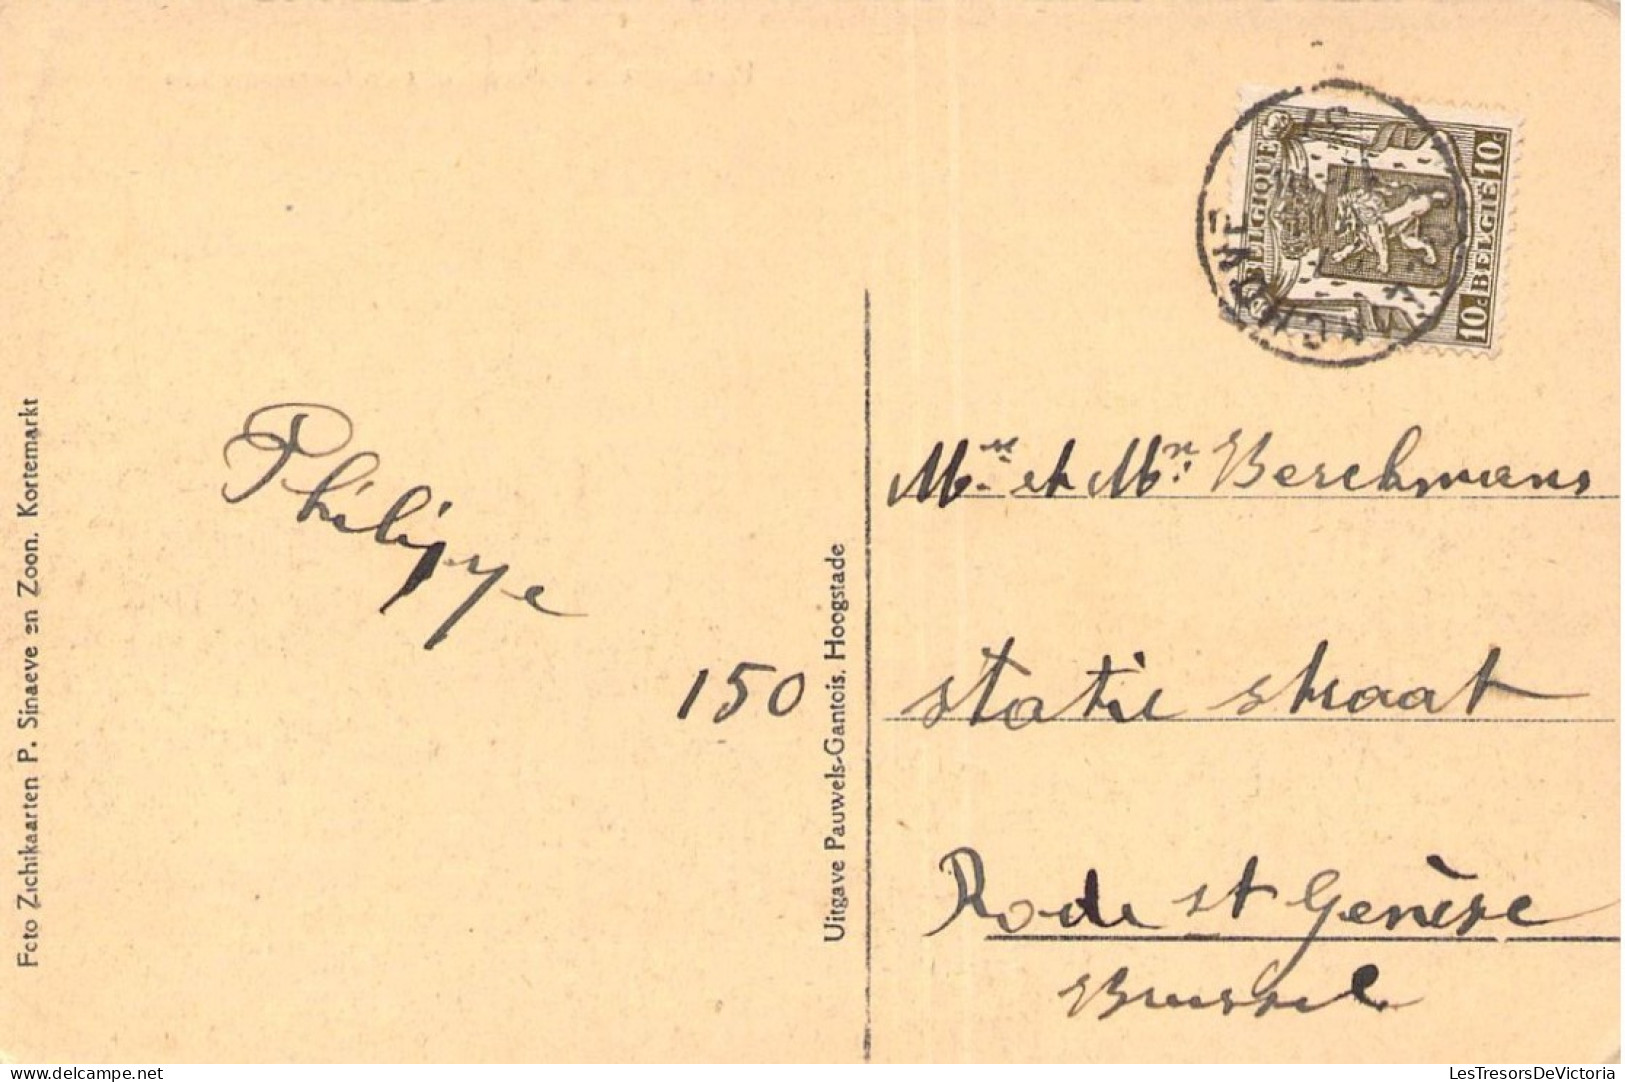 Foto Zichtkaarten P. Sinaeve en Zoon. Kortemarkt
Philippe
150
Uitgave Pauwels-Gantois, Hoogstade
BELGIQUE
10c BELGIË 10c
37
Mr et Mme Berckmans
Statie straat
Rode st Genèse
Brussel
delcampe.net
LesTresorsDeVictoria